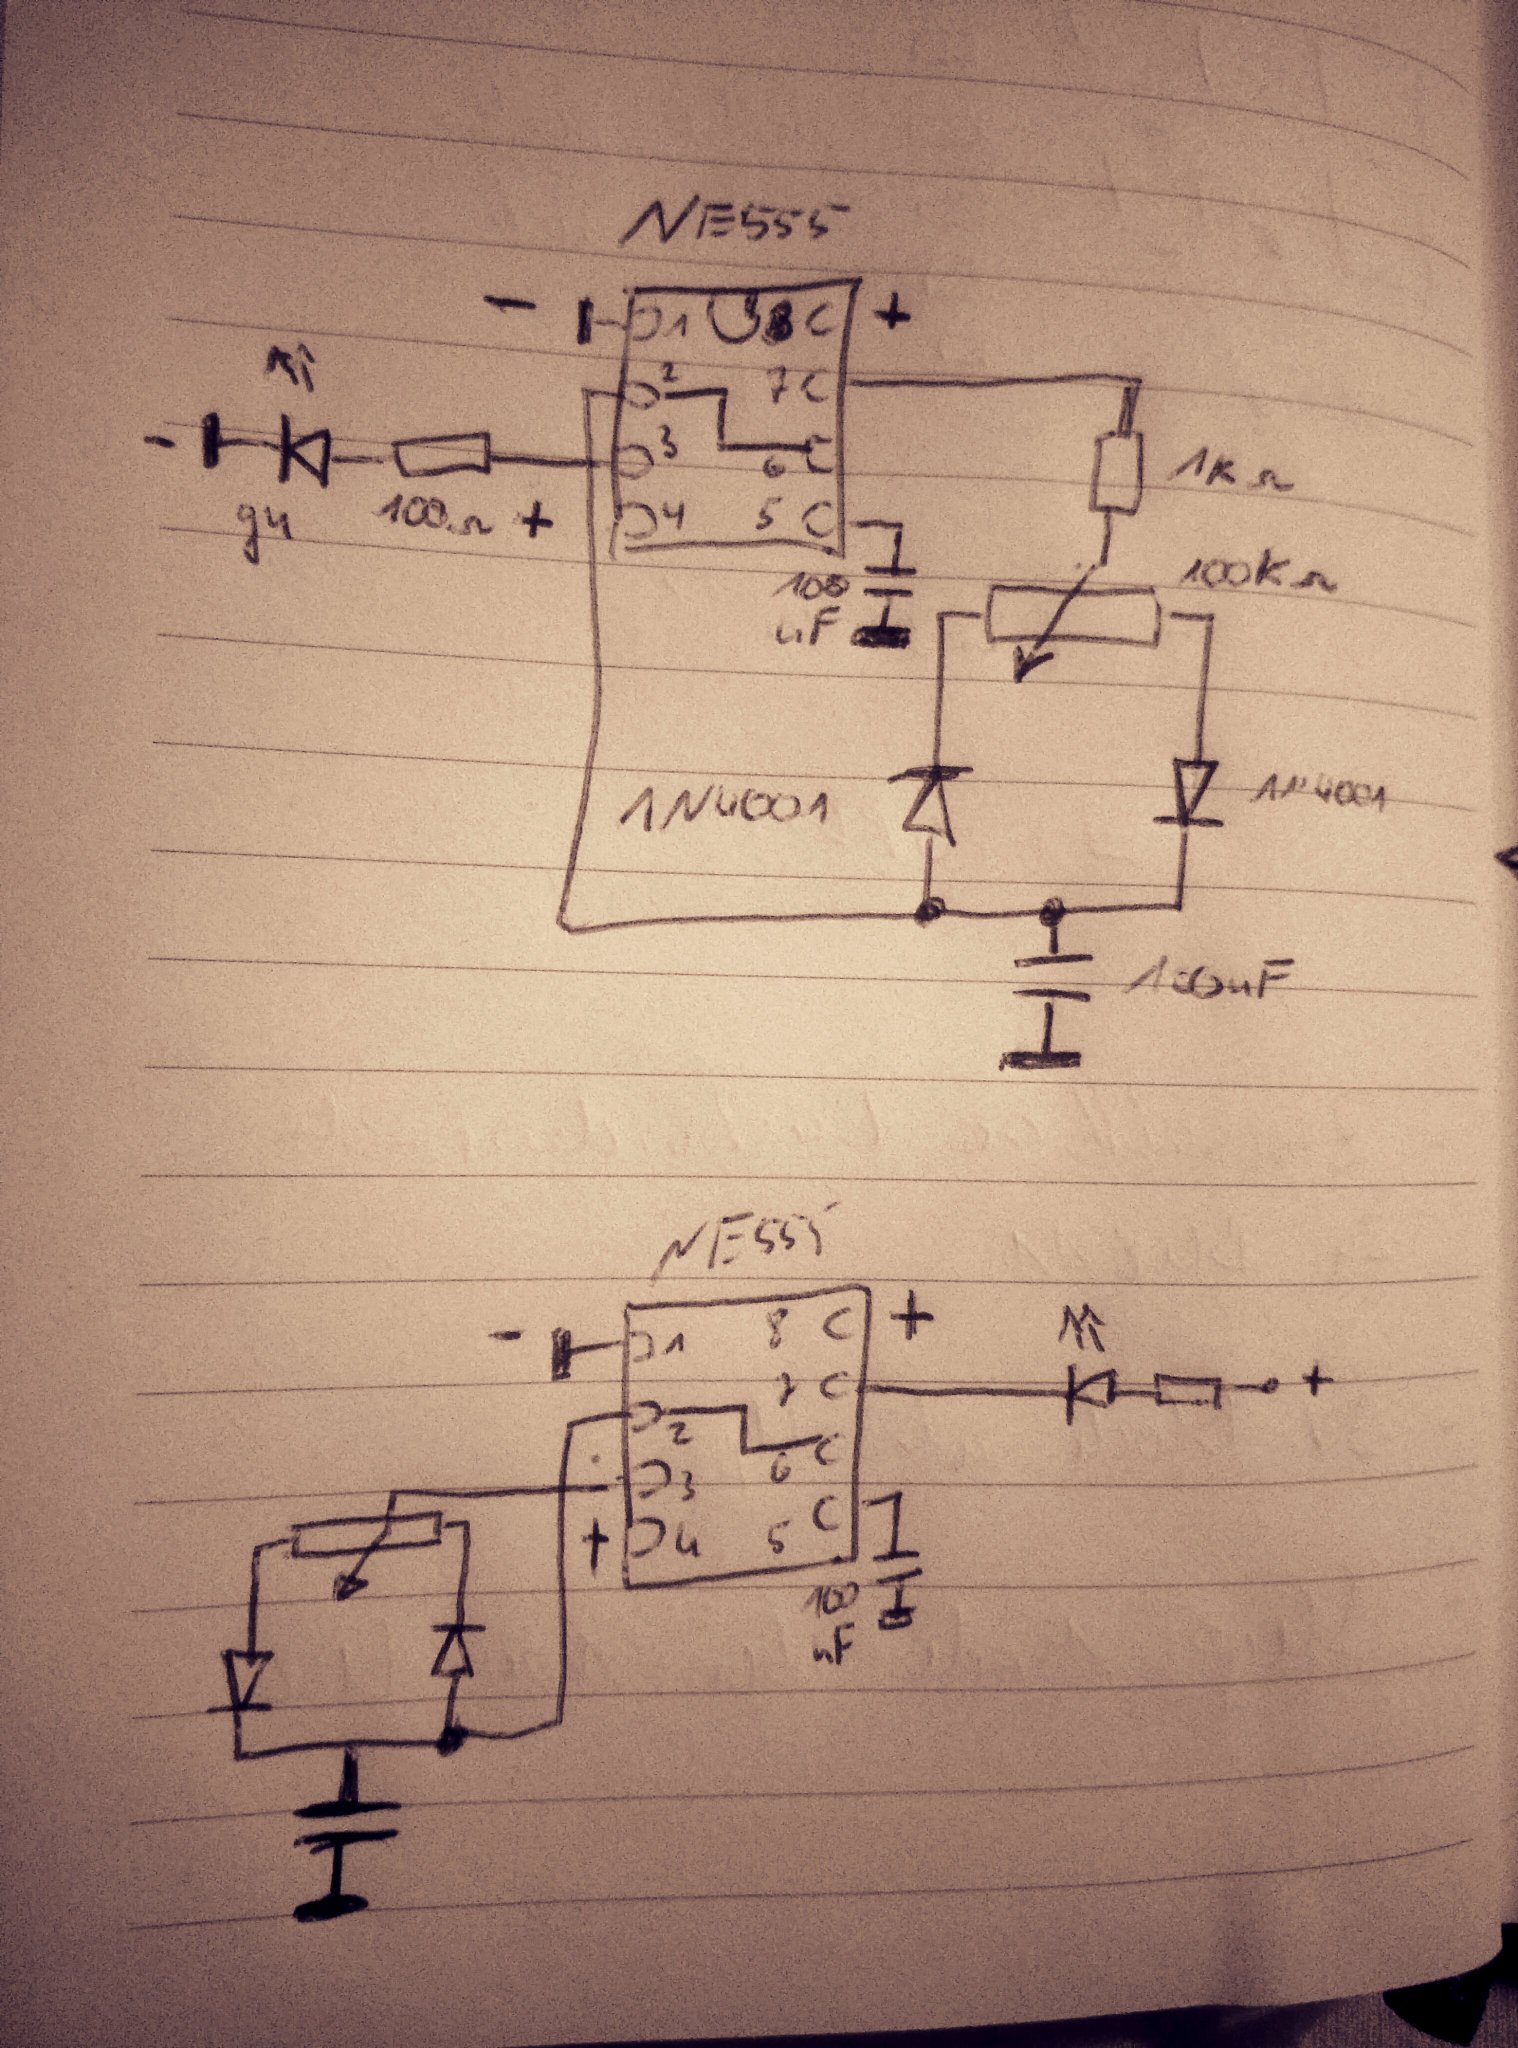 NE555
- 1 8 +
2 7
3 6
4 5
-
g4 100Ω +
1KΩ
100KΩ
100
nF
1N4001 1N4001
100nF
NE555
- 1 8 +
7 +
2
6
3
+ 4 5
100
nF